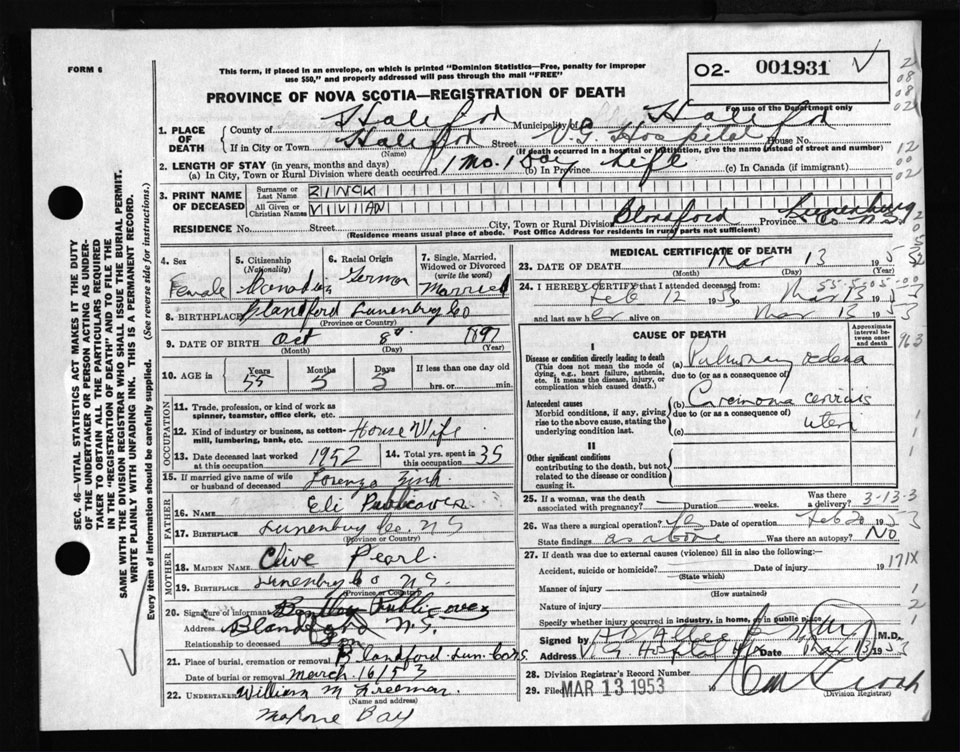 FORM 6
This form, if placed in an envelope, on which is printed "Dominion Statistics—Free, penalty for improper
use $50," and properly addressed will pass through the mail "FREE"
O2- 001931
PROVINCE OF NOVA SCOTIA—REGISTRATION OF DEATH
For use of the Department only
1. PLACE OF DEATH
County of Halifax Municipality of Halifax
If in City or Town Halifax Street V.G. Hospital House No.
(Name) (If death occurred in a hospital or institution, give the name instead of street and number)
2. LENGTH OF STAY (in years, months and days)
(a) In City, Town or Rural Division where death occurred 1 mo. 1 Day (b) In Province Life (c) In Canada (if immigrant)
3. PRINT NAME OF DECEASED
Surname or Last Name ZINCK
All Given or Christian Names VIVIIAN
RESIDENCE No. Street City, Town or Rural Division Blandford Province Lunenburg Co N.S.
(Residence means usual place of abode. Post Office Address for residents in rural parts not sufficient)
4. Sex Female
5. Citizenship (Nationality) Canadian
6. Racial Origin German
7. Single, Married, Widowed or Divorced (write the word) Married
8. BIRTHPLACE Blandford Lunenburg Co
(Province or Country)
9. DATE OF BIRTH Oct 8th 1897
(Month) (Day) (Year)
10. AGE in Years Months Days If less than one day
55 5 5 hrs. or min.
OCCUPATION
11. Trade, profession, or kind of work as spinner, teamster, office clerk, etc.
12. Kind of industry or business, as cotton-mill, lumbering, bank, etc. House Wife
13. Date deceased last worked at this occupation 1952
14. Total yrs. spent in this occupation 35
15. If married give name of wife or husband of deceased Lorenzo Zink
FATHER
16. Name Eli Publicover
17. BIRTHPLACE Lunenburg Co. N S
(Province or Country)
MOTHER
18. MAIDEN NAME Clive Pearl
19. BIRTHPLACE Lunenburg Co N.S.
(Province or Country)
20. Signature of informant Publicover
Address Blandford N.S.
Relationship to deceased
21. Place of burial, cremation or removal Blandford Lun. Co N.S.
Date of burial or removal March 16/53
22. UNDERTAKER William M Freeman
(Name and address)
Mahone Bay
MEDICAL CERTIFICATE OF DEATH
23. DATE OF DEATH Mar 13 1953
(Month) (Day) (Year)
24. I HEREBY CERTIFY that I attended deceased from:
Feb 12 1953 to Mar 13 1953
and last saw her alive on Mar 13 1953
CAUSE OF DEATH
Approximate interval between onset and death
I
Disease or condition directly leading to death
(This does not mean the mode of dying, e.g., heart failure, asthenia, etc. It means the disease, injury, or complication which caused death.)
(a) Pulmonary edema
due to (or as a consequence of)
Antecedent causes
Morbid conditions, if any, giving rise to the above cause, stating the underlying condition last.
(b) Carcinoma cervicis uteri
due to (or as a consequence of)
(c)
II
Other significant conditions
contributing to the death, but not related to the disease or condition causing it.
25. If a woman, was the death associated with pregnancy? Duration weeks. Was there a delivery? 3-13-3
26. Was there a surgical operation? Yes Date of operation Feb 20 1953
State findings as above Was there an autopsy? No
27. If death was due to external causes (violence) fill in also the following:—
Accident, suicide or homicide? Date of injury 19 171X
(State which)
Manner of injury
(How sustained)
Nature of injury
Specify whether injury occurred in industry, in home, or in public place
Signed by M.D.
Address V. G. Hospital Hfx Date Mar 13 1953
28. Division Registrar's Record Number
29. Filed MAR 13 1953
(Division Registrar)
SEC. 46—VITAL STATISTICS ACT MAKES IT THE DUTY
OF THE UNDERTAKER OR PERSON ACTING AS UNDER-
TAKER TO OBTAIN ALL THE PARTICULARS REQUIRED
IN THE "REGISTRATION OF DEATH" AND TO FILE THE
SAME WITH THE DIVISION REGISTRAR WHO SHALL ISSUE THE BURIAL PERMIT.
WRITE PLAINLY WITH UNFADING INK. THIS IS A PERMANENT RECORD.
Every item of information should be carefully supplied. (See reverse side for instructions.)